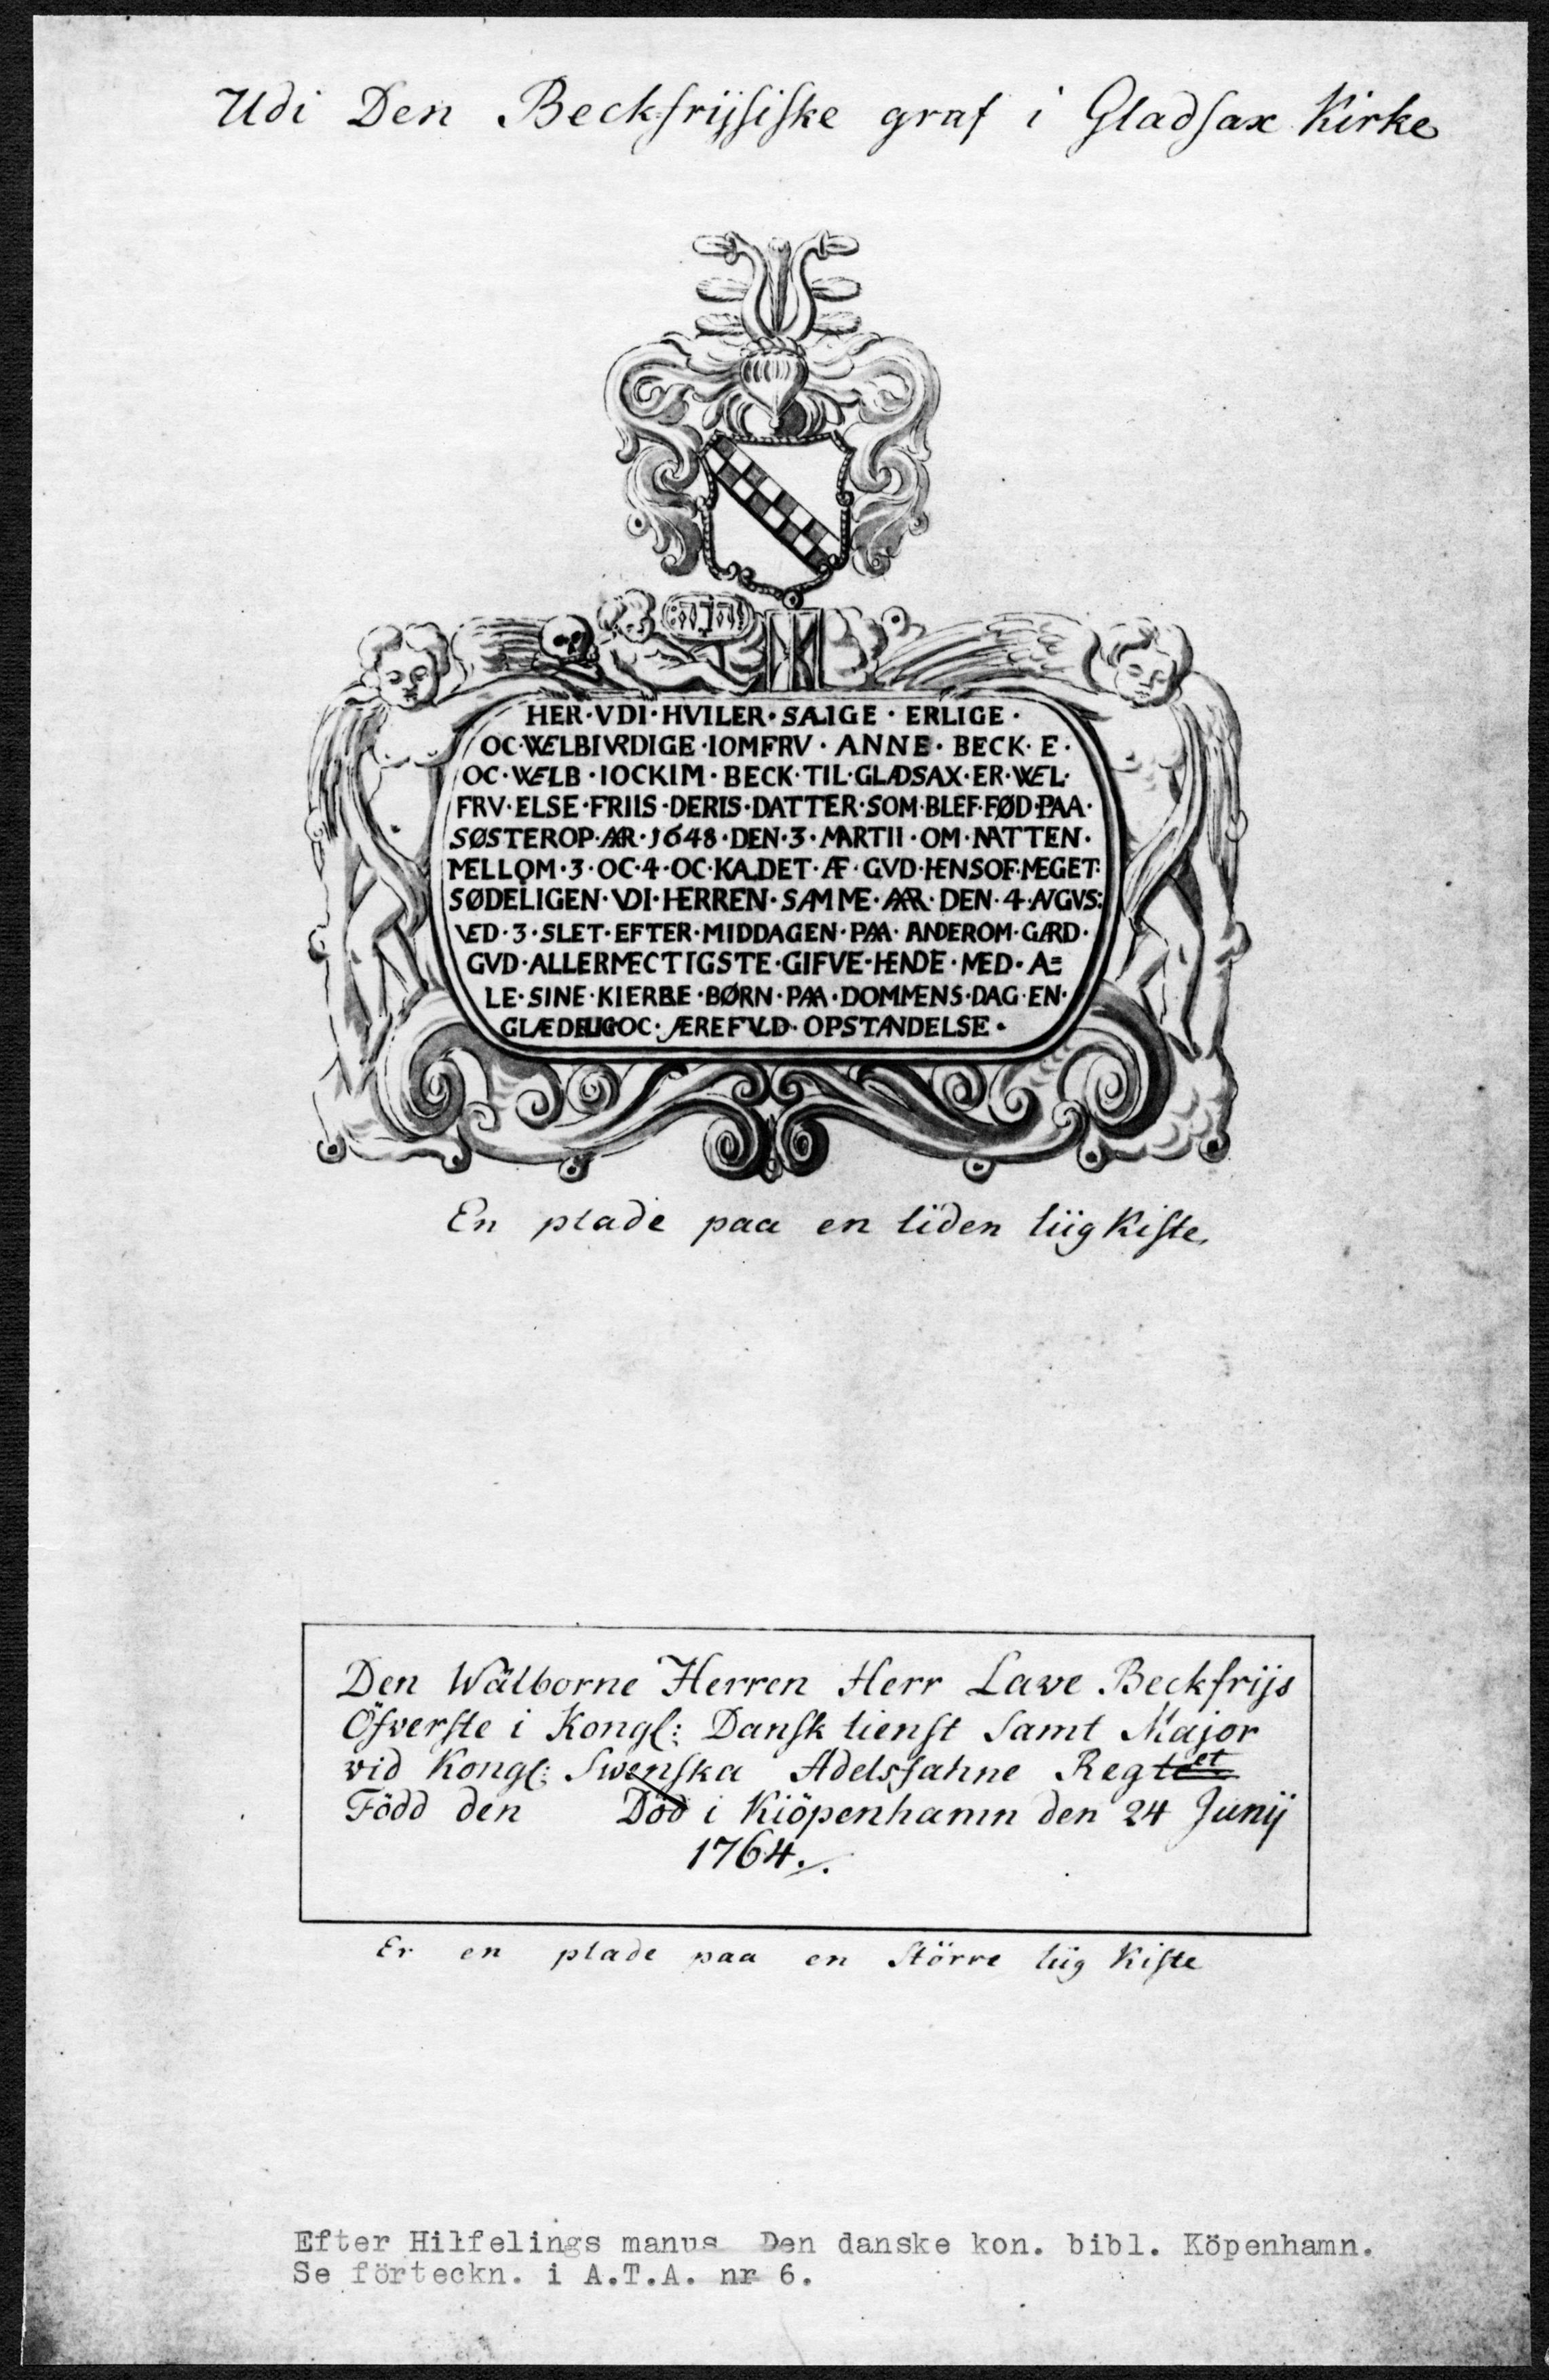 Udi Den Beckfrijsiske graf i Gladsax Kirke
HER·VDI·HVILER·SALIGE·ERLIGE·
OC·WELBIVRDIGE·IOMFRV·ANNE·BECK·E·
OC·WELB·IOCKIM·BECK·TIL·GLADSAX·ER·WEL·
FRV·ELSE·FRIIS·DERIS·DATTER·SOM·BLEF·FØD·PAA·
SØSTEROP·AAR·1648·DEN·3·MARTII·OM·NATTEN·
MELLOM·3·OC·4·OC·KALDET·AF·GVD·HENSOF·MEGET·
SØDELIGEN·VDI·HERREN·SAMME·AAR·DEN·4·AVGVS:
VED·3·SLET·EFTER·MIDDAGEN·PAA·ANDEROM·GARD·
GVD·ALLERMECTIGSTE·GIFVE·HENDE·MED·A=
LE·SINE·KIERRE·BØRN·PAA·DOMMENS·DAG·EN·
GLÆDELIG·OC·ÆREFVLD·OPSTANDELSE·
En plade paa en liden liig Kiste,
Den Wälborne Herren Herr Lave Beckfrijs
Öfverste i Kongl: Dansk tienst Samt Major
vid Kongl: Swenska Adelsfahne Regtet
Född den Död i Kiöpenhamn den 24 Junij
1764./.
Er en plade paa en Större liig Kiste
Efter Hilfelings manus Den danske kon. bibl. Köpenhamn.
Se förteckn. i A.T.A. nr 6.